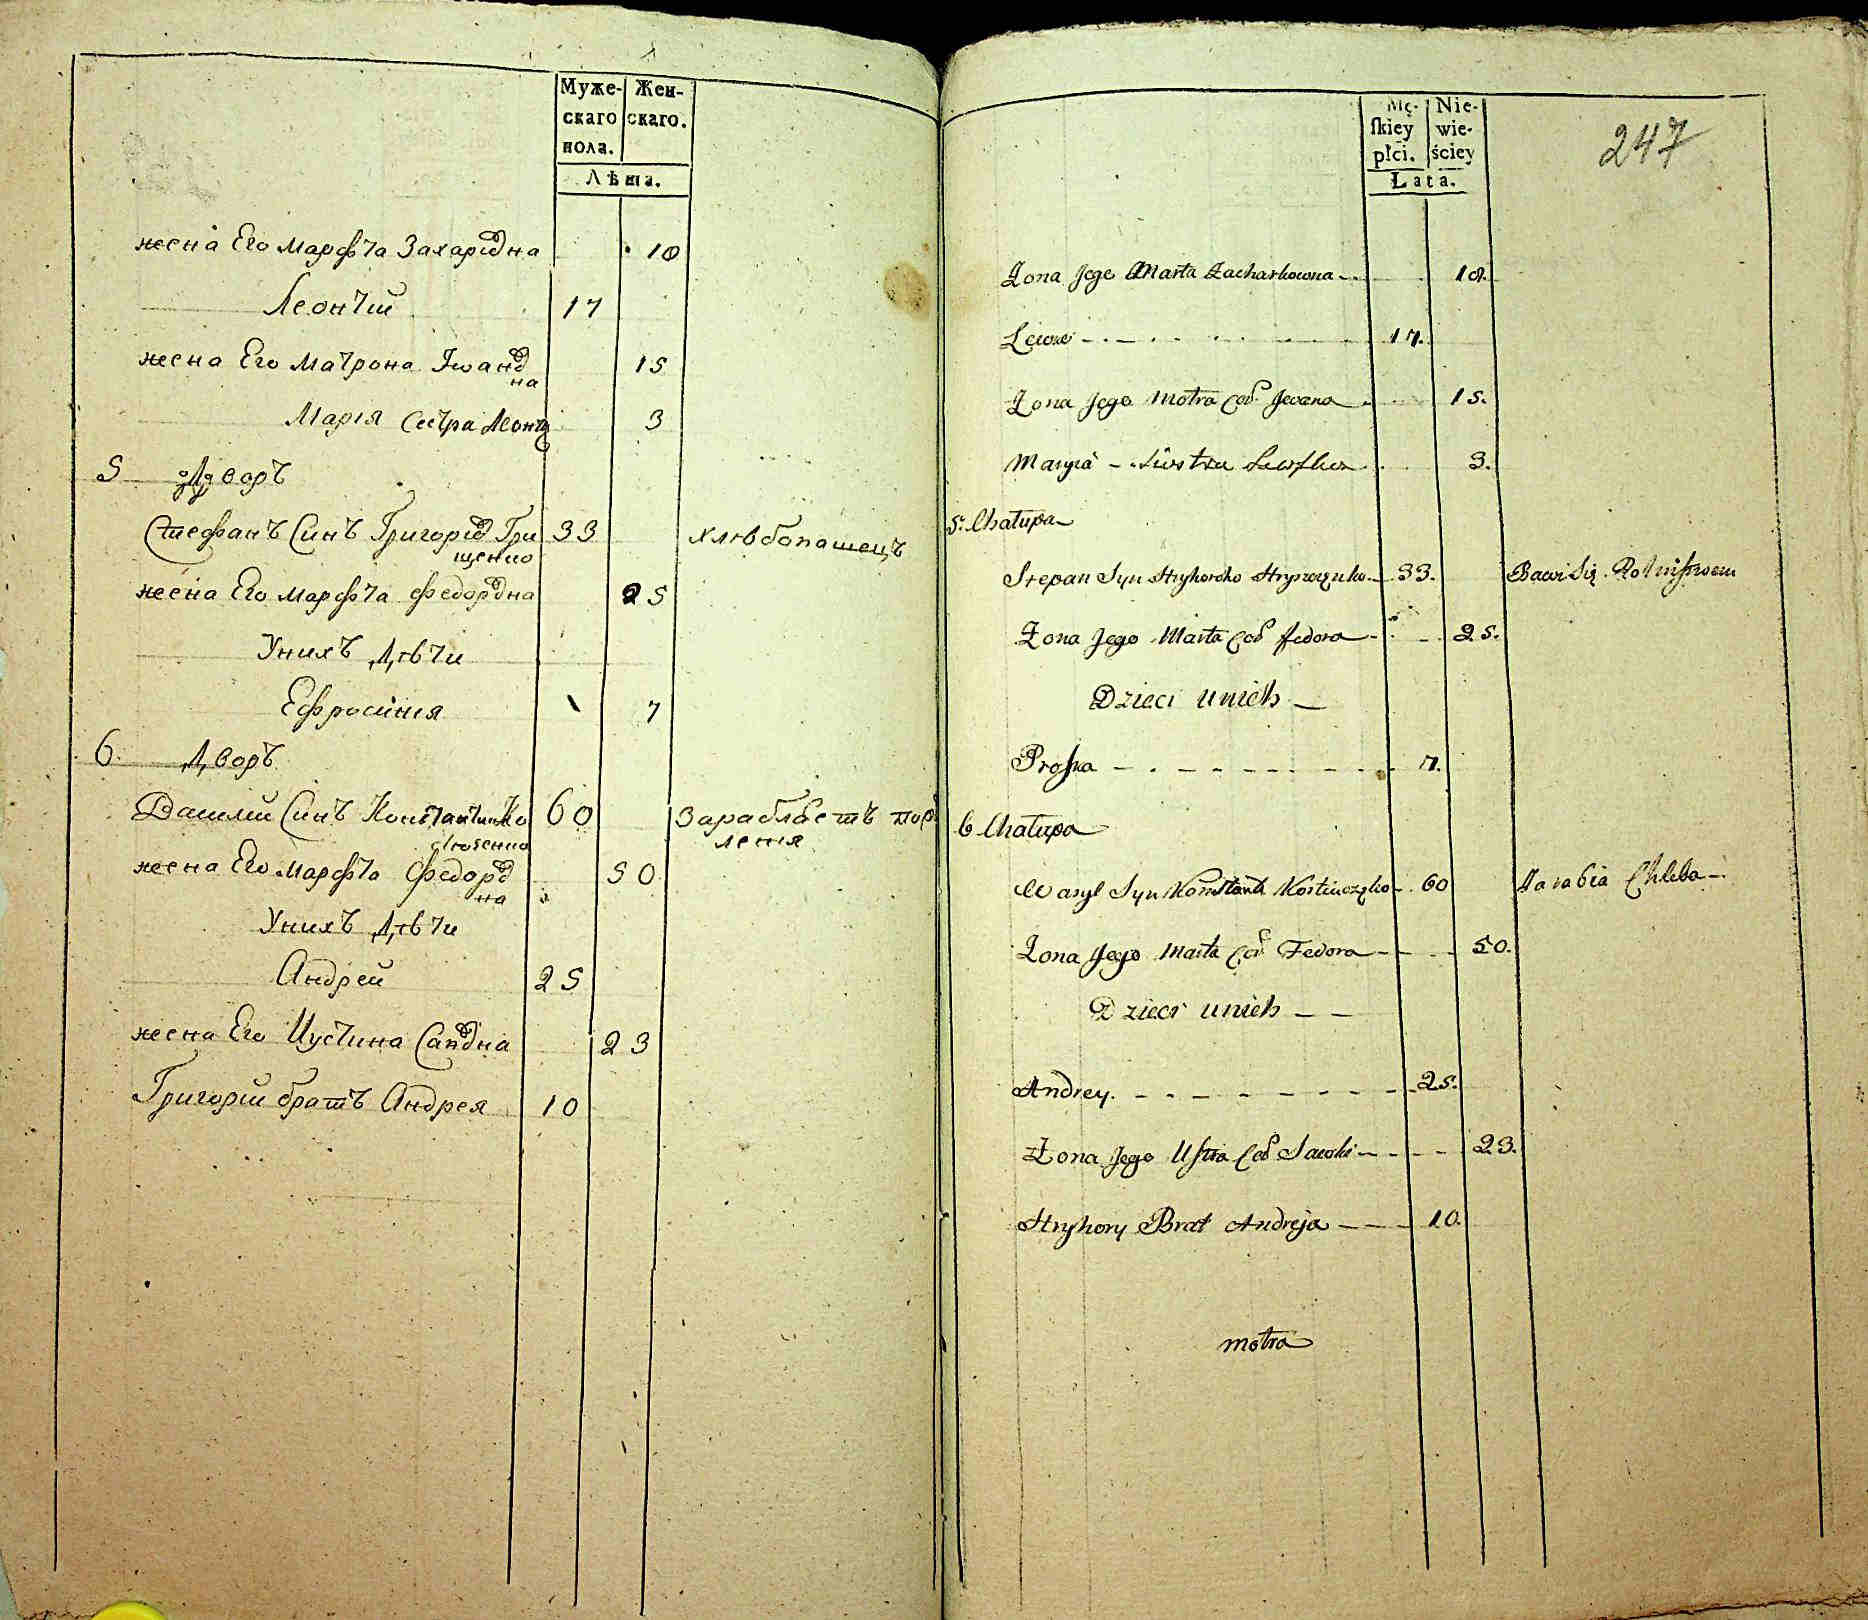 Муже-
скаго
пола.
Жен-
скаго.
Лѣта.
жена Его Марфѣа Захаровна 18
Леонтїй 17
жена Его Матрона Іванов
на 15
Марїя Сестра Леонтя 3
5 Дворъ
Стефанъ Синъ Григоров Гри 33 хлѣбопашецъ
щенко
жена Его Марфта Федоровна 25
Унихъ Дѣти
Ефросинїя 7
6. Дворъ
Василїй Синъ Константин Ко 60
стюченко
жена Его Марфта Федоров 50
на
Унихъ Дѣти
Андрей 25
жена Его Иустина Саввовна 23
Григорїй братъ Андрея 10
247
Mę-
ſkiey
płci.
Nie-
wie-
ściey
Lata.
Żona Jego Marta Zacharkowna 18.
Lewon 17.
Żona Jego Motra Cor Jwana 15.
Maryia Siostra 3.
5. Chałupa
Stepan Syn Hryhorcho Hryszczenko 33. Bawi Się Rolnictwem
Żona Jego Marta Cor Fedora 25.
Dzieci unich
Proſka 7.
6 Chałupa
Wasyl Syn Konstanta Kostiuczęko 60 Zarabia Chleba
Żona Jego Marta Cor Fedora 50.
Dzieci unich
Andrey. 25.
Żona Jego Uſtia Cor Sawki 23.
Hryhory Brat Andreja 10.
motra